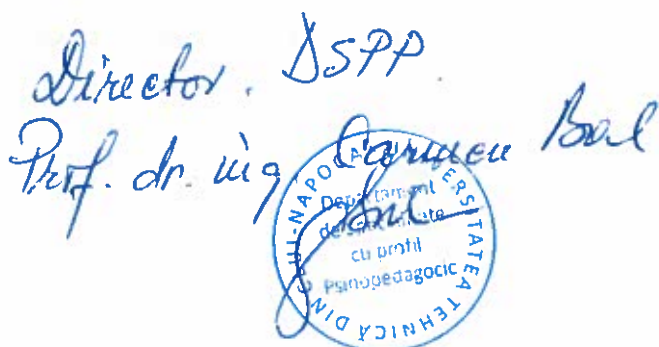 Director. DSPP
Prof. dr. ing. Carmen Bal
UNIVERSITATEA TEHNICĂ DIN CLUJ-NAPOCA
Departament
de Specialitate
cu profil
Psihopedagogic